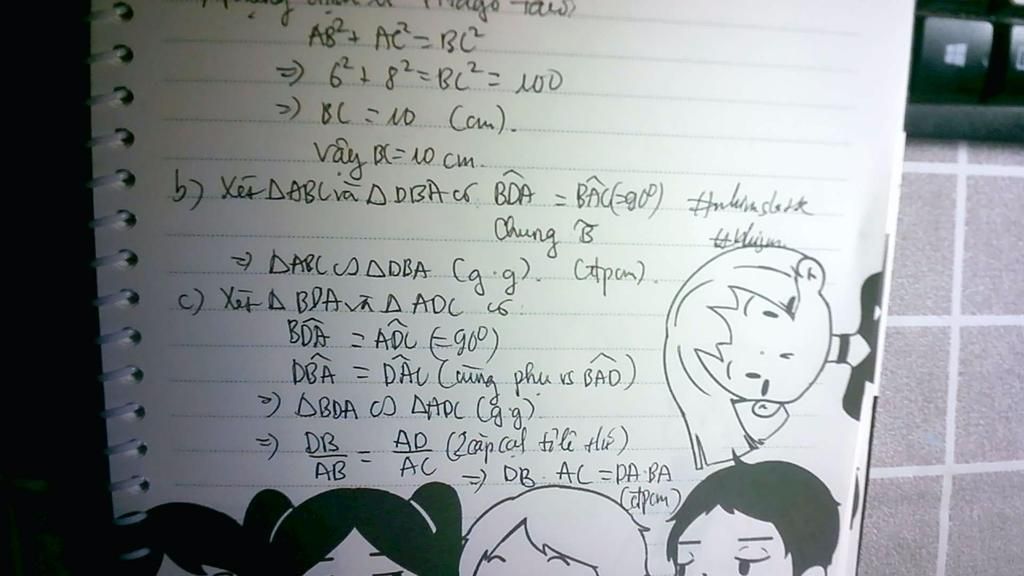 AB² + AC² = BC²
=> 6² + 8² = BC² = 100
=> BC = 10 (cm).
Vậy BC = 10 cm.
b) Xét △ABC và △DBA có BDA = BAC (=90°)
Chung B
=> △ABC ∽ △DBA (g.g). (đpcm)
c) Xét △BDA và △ADC có:
BDA = ADC (=90°)
DBA = DAC (cùng phụ vs BAD)
=> △BDA ∽ △ADC (g.g)
=> DB/AB = AD/AC (2 cặp cạh tỉ lệ)
=> DB . AC = DA . BA
(đpcm)